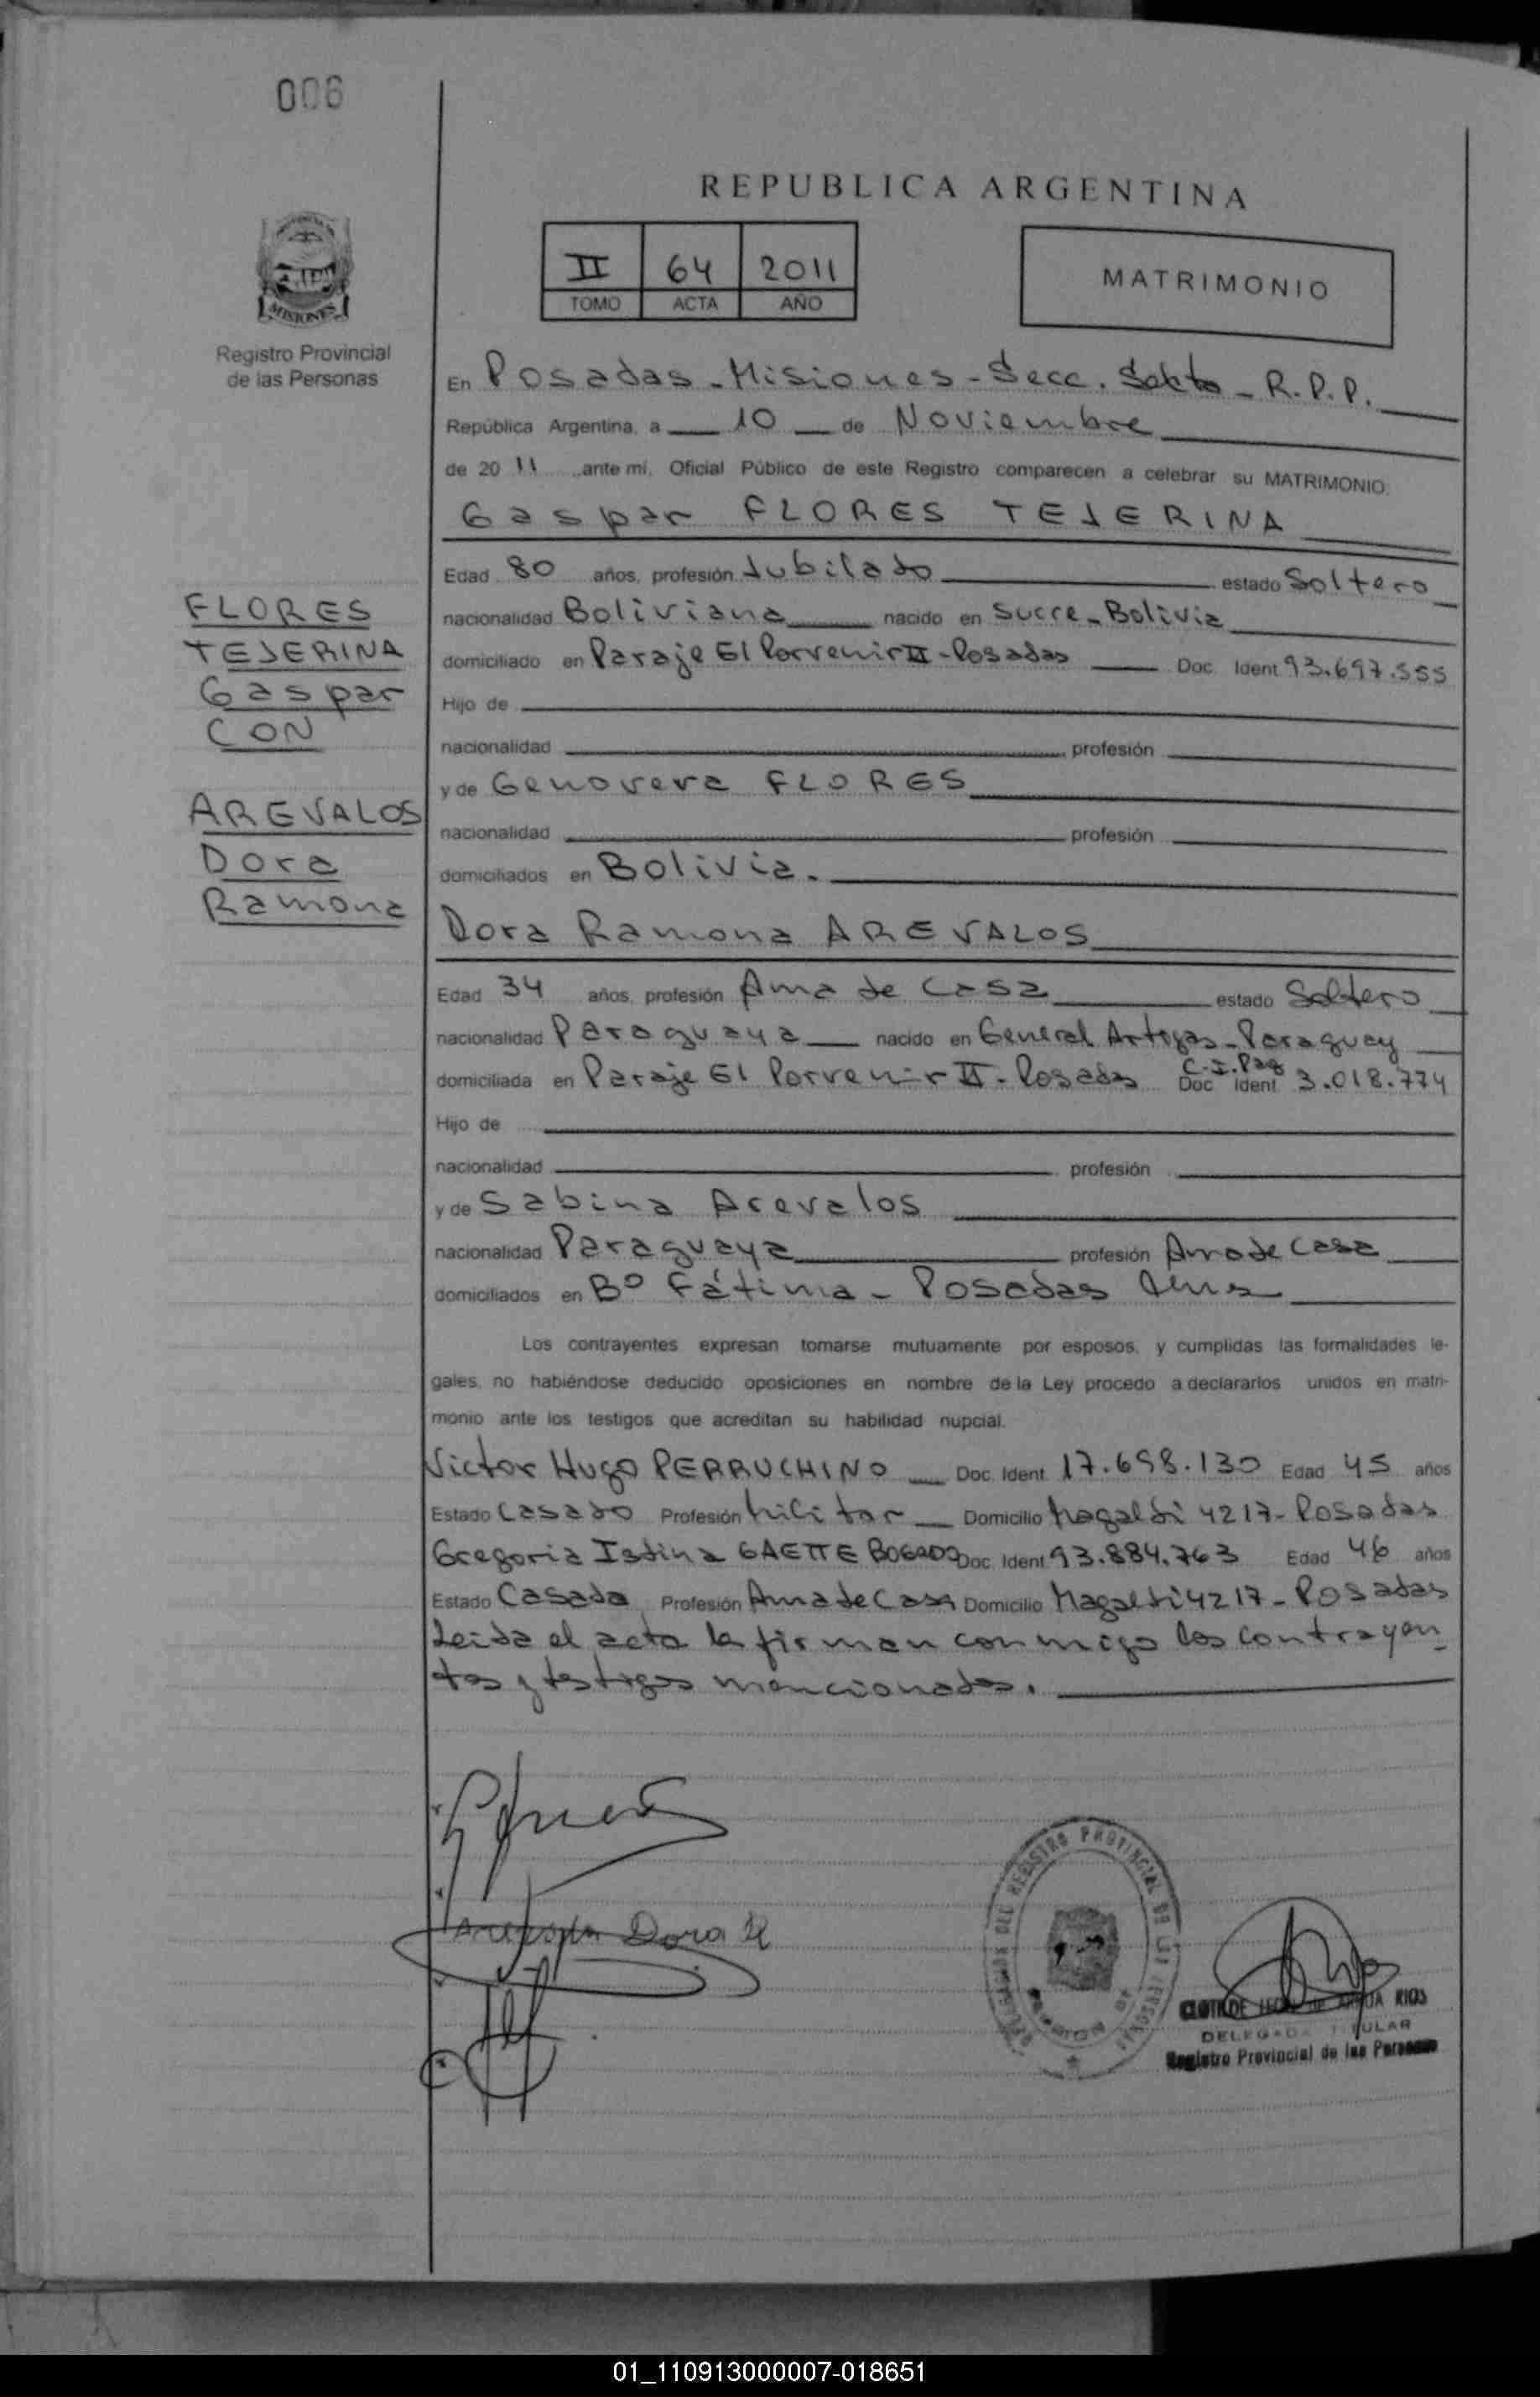 006
REPUBLICA ARGENTINA
II 64 2011
TOMO ACTA AÑO
MATRIMONIO
MISIONES
Registro Provincial
de las Personas
En Posadas - Misiones - Secc. Sexta - R.P.P.
República Argentina, a 10 de Noviembre
de 2011 ante mí, Oficial Público de este Registro comparecen a celebrar su MATRIMONIO:
Gaspar FLORES TEJERINA
Edad 80 años, profesión Jubilado estado Soltero
nacionalidad Boliviana nacido en Sucre - Bolivia
domiciliado en Paraje El Porvenir II - Posadas Doc. Ident 93.697.555
Hijo de
nacionalidad profesión
y de Genoveva FLORES
nacionalidad profesión
domiciliados en Bolivia.
FLORES
TEJERINA
Gaspar
CON
AREVALOS
Dora
Ramona
Dora Ramona AREVALOS
Edad 34 años, profesión Ama de Casa estado Soltero
nacionalidad Paraguaya nacido en General Artigas - Paraguay
domiciliada en Paraje El Porvenir II - Posadas C.I. Pag Doc Ident 3.018.774
Hijo de
nacionalidad profesión
y de Sabina Arevalos
nacionalidad Paraguaya profesión Ama de Casa
domiciliados en Bº Fátima - Posadas
Los contrayentes expresan tomarse mutuamente por esposos, y cumplidas las formalidades le-
gales, no habiéndose deducido oposiciones en nombre de la Ley procedo a declararlos unidos en matri-
monio ante los testigos que acreditan su habilidad nupcial.
Victor Hugo PERRUCHINO Doc. Ident. 17.698.130 Edad 45 años
Estado Casado Profesión Militar Domicilio Magaldi 4217 - Posadas
Gregoria GAETTE BOGADO Doc. Ident 93.884.763 Edad 46 años
Estado Casada Profesión Ama de Casa Domicilio Magaldi 4217 - Posadas
Leida el acta la firman conmigo los contrayen
tes y testigos mencionados.
Dora R
REGISTRO PROVINCIAL DE LAS PERSONAS
CLOTILDE RIOS
DELEGADA TITULAR
Registro Provincial de las Personas
01_110913000007-018651